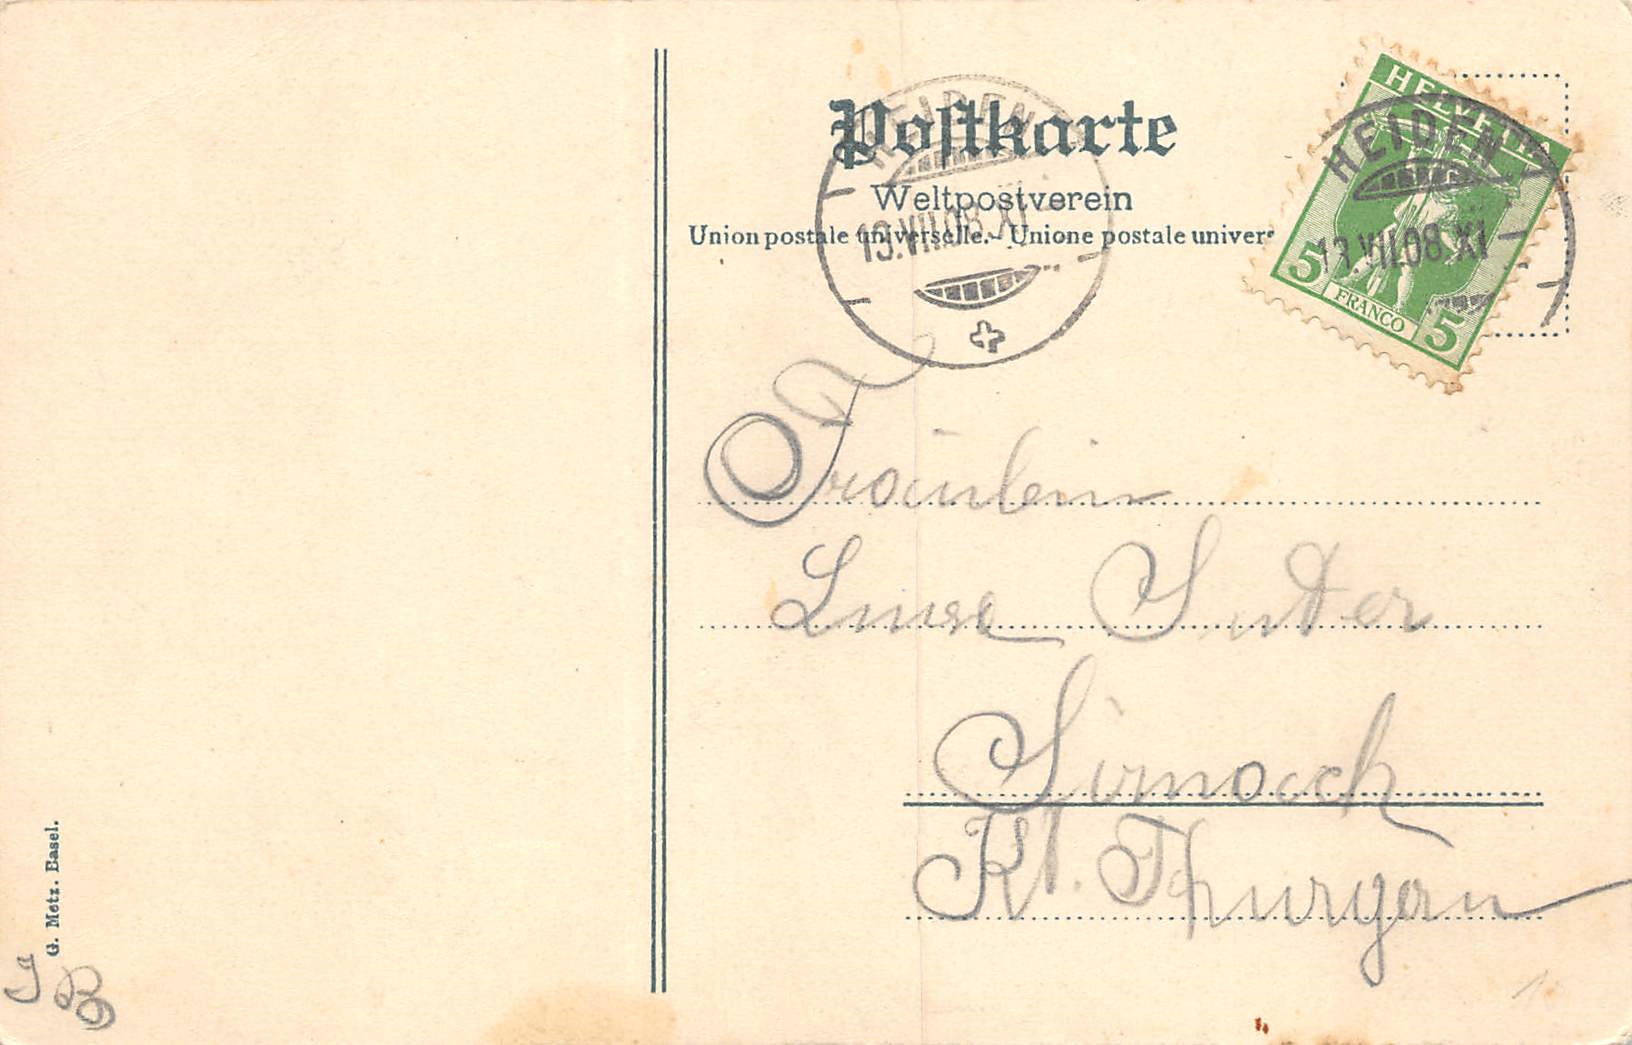 Postkarte
Weltpostverein
Union postale universelle. - Unione postale univers
HEIDEN
13.VII.08.XI
HELVETIA
5 FRANCO 5
HEIDEN
13.VII.08.XI
Fräulein
Luise Suter
Sirnach
Kt. Thurgau
G. Metz. Basel.